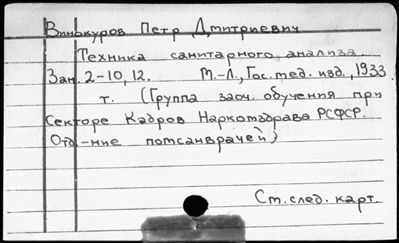 Винокуров Петр Дмитриевич
Техника санитарного анализа.
Зан. 2-10, 12. М.-Л., Гос. мед. изд., 1933
т. (Группа заоч. обучения при
Секторе Кадров Наркомздрава РСФСР.
Отд-ние помсанврачей)
См. след. карт.